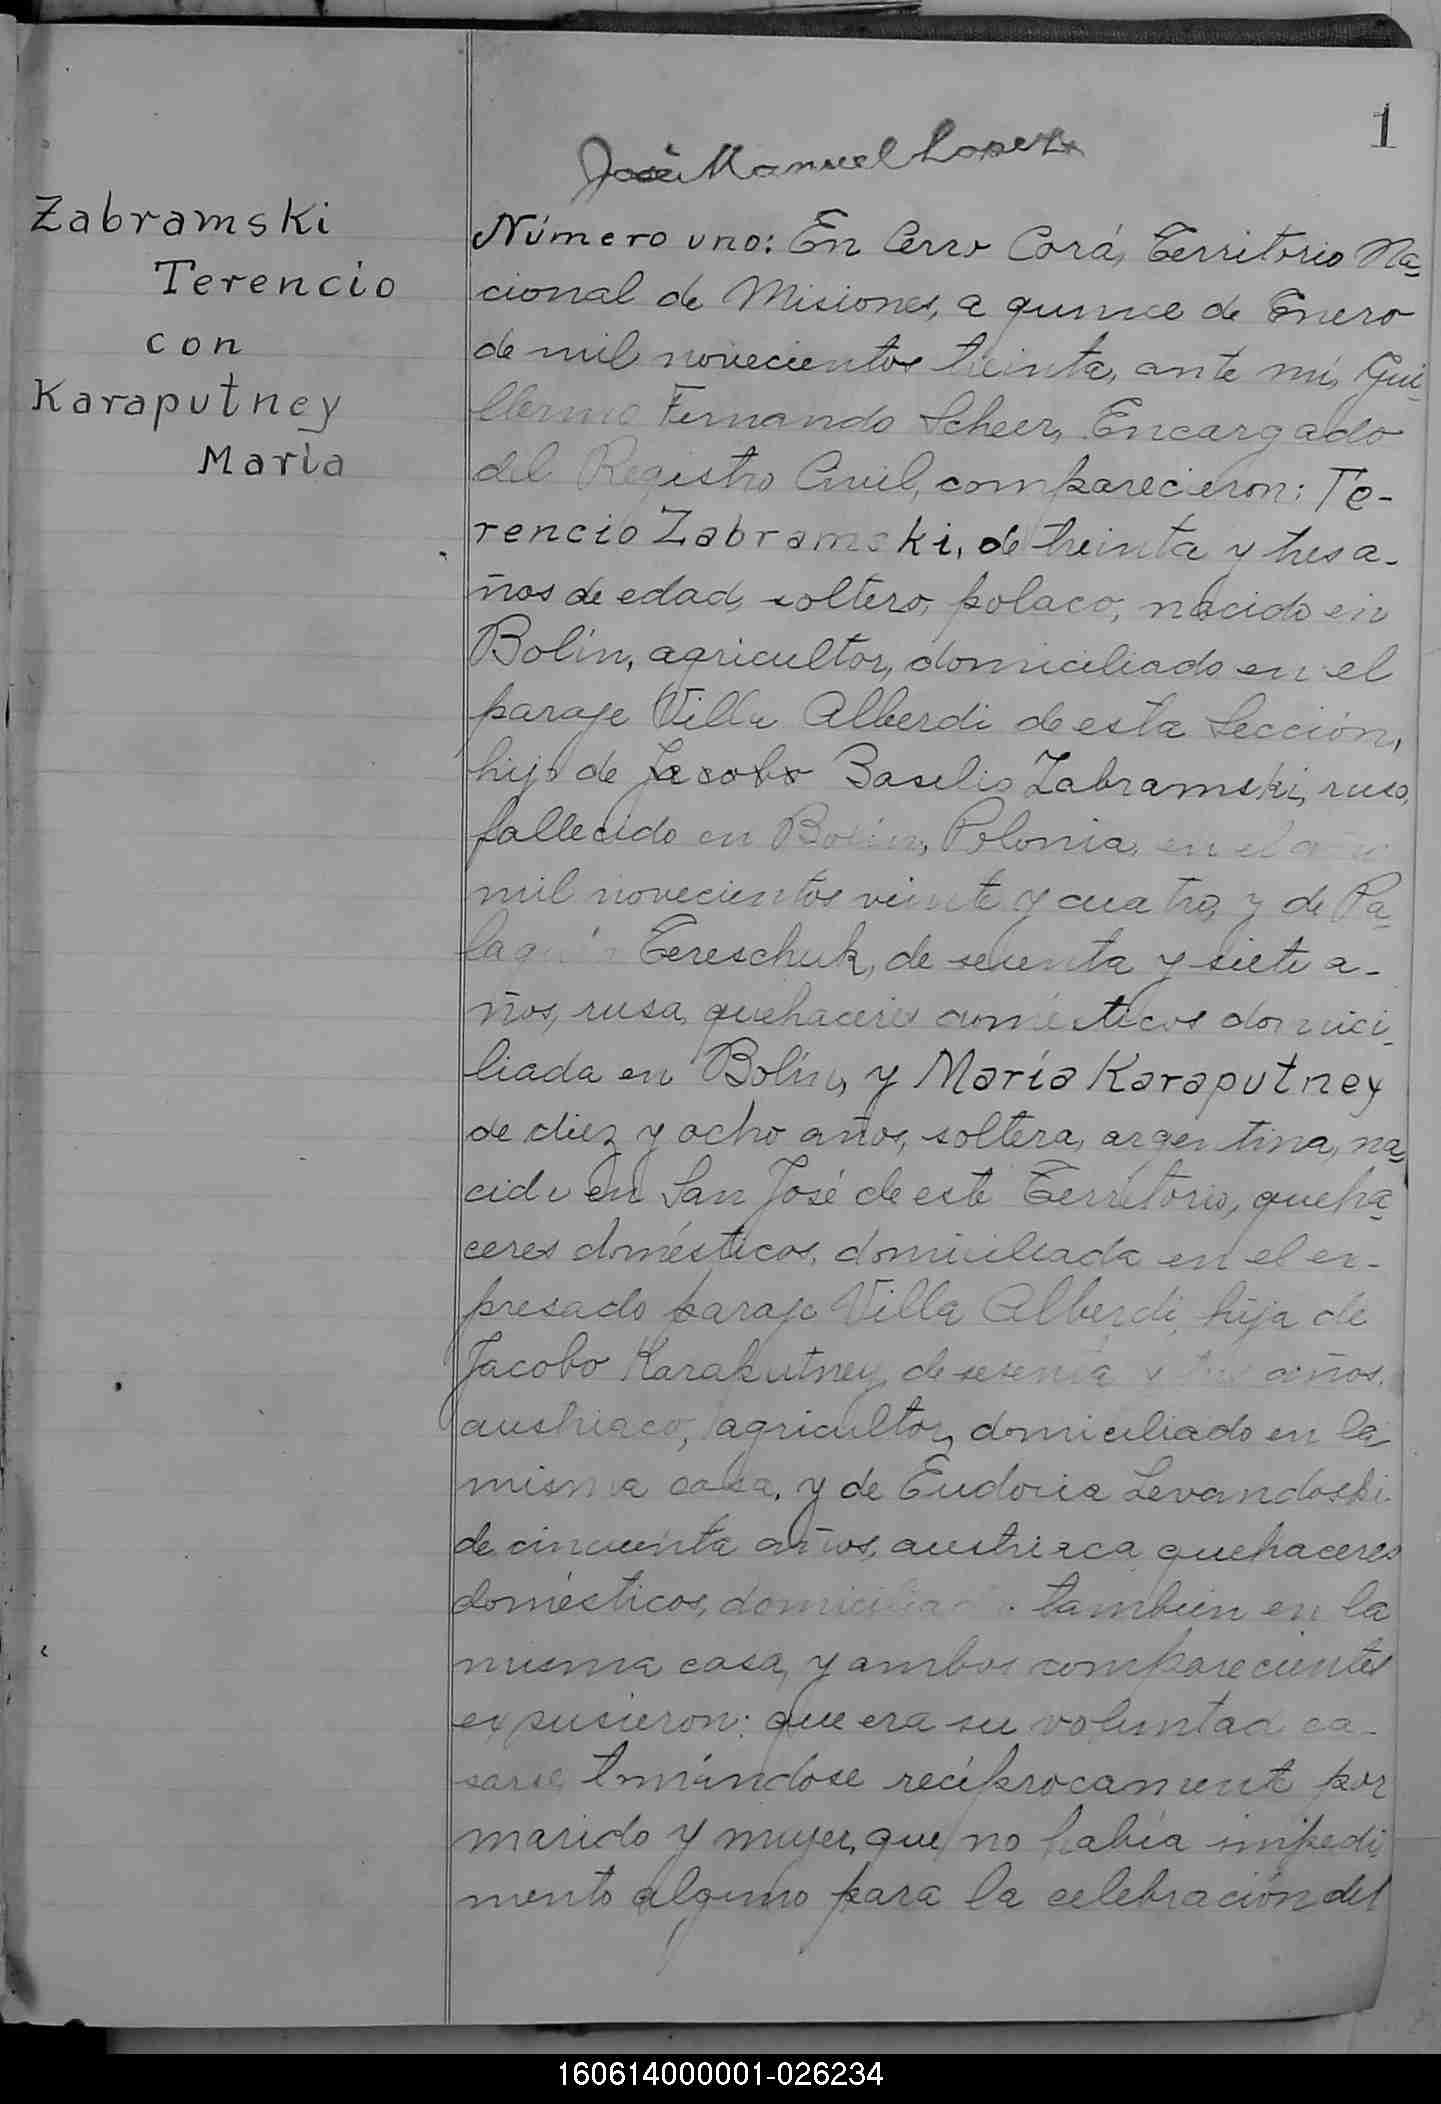 1
José Manuel Lopez
Zabramski
Terencio
con
Karaputney
María
Número uno: En Cerro Corá, Territorio Na=
cional de Misiones, a quince de Enero
de mil novecientos treinta, ante mí, Gui=
llermo Fernando Scheer, Encargado
del Registro Civil, comparecieron: Te-
rencio Zabramski, de treinta y tres a-
ños de edad, soltero, polaco, nacido en
Bolín, agricultor, domiciliado en el
paraje Villa Alberdi de esta Sección,
hijo de Jacobo Basilio Zabramski, ruso,
fallecido en Bolín, Polonia, en el año
mil novecientos veinte y cuatro, y de Pa=
Tereschuk, de setenta y siete a-
ños, rusa, quehaceres domésticos domici-
liada en Bolín, y María Karaputney
de diez y ocho años, soltera, argentina, na=
cida en San José de este Territorio, queha=
ceres domésticos, domiciliada en el ex-
presado paraje Villa Alberdi, hija de
Jacobo Karaputney, de sesenta y tres años,
austriaco, agricultor, domiciliado en la
misma casa, y de Eudocia Levandoski
de cincuenta años, austriaca quehaceres
domésticos, domiciliada también en la
misma casa, y ambos comparecientes
expusieron: que era su voluntad ca-
sarse, tomándose recíprocamente por
marido y mujer, que no había impedi
mento alguno para la celebración del
160614000001-026234